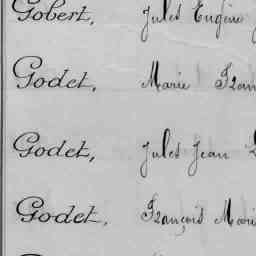 Gobert, Jules Eugène
Godet, Marie Fran
Godet, Jules Jean
Godet, François Mari